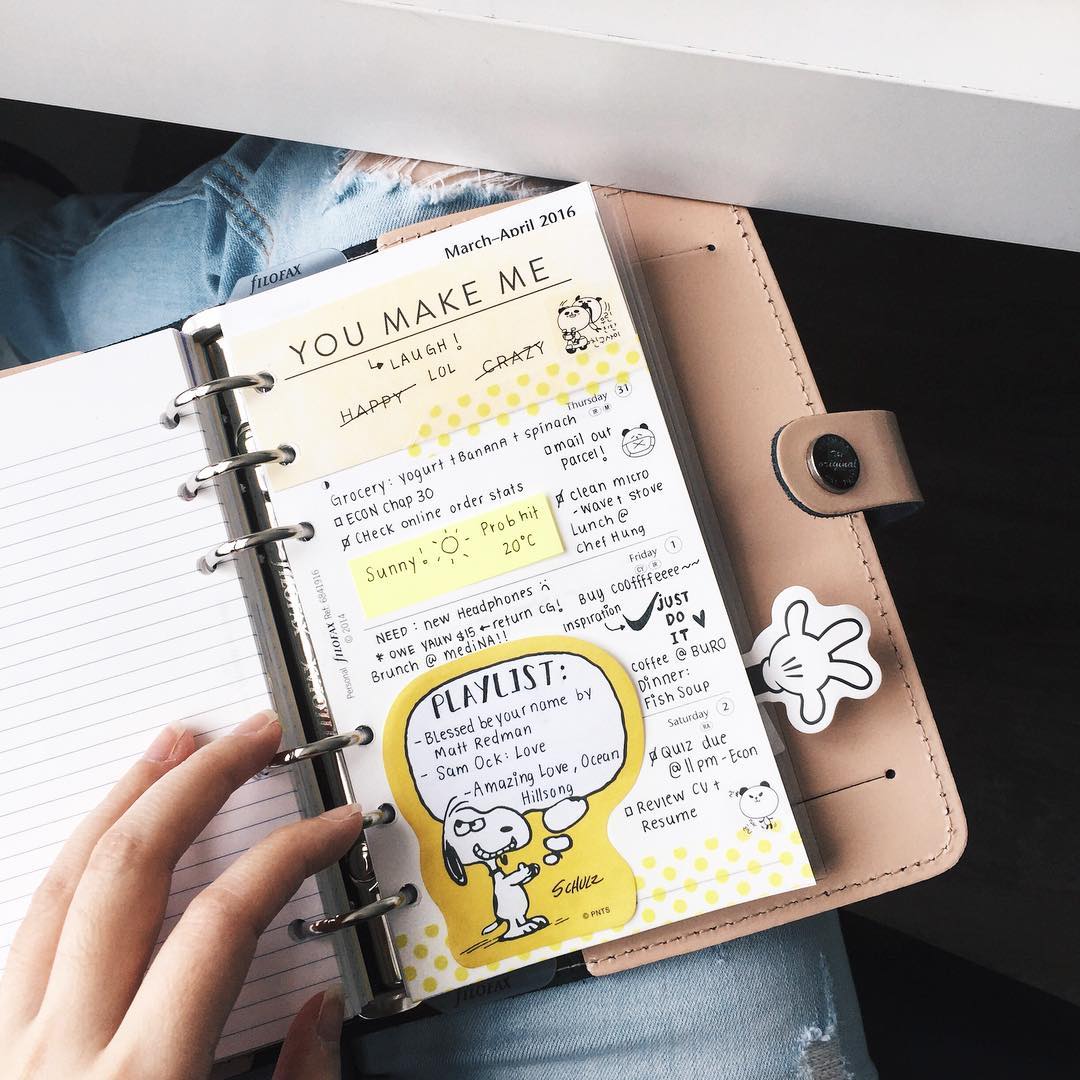 March–April 2016
fILOFAX
YOU MAKE ME
↳ LAUGH!
HAPPY LOL CRAZY
Thursday 31
Grocery: yogurt + BANANA + spinach
□ ECON Chap 30
CHeck online order stats
□ mail out
parcel!
clean micro
-wave + stove
Lunch @
Chef Hung
Sunny! Prob hit
20°C
Friday 1
CY IR
NEED: new Headphones
* OWE YAUW $15 ← return CG!
Brunch @ mediNA!!
Buy cooffffeeee~~
inspiration
JUST
DO
IT ♥
coffee @ BURO
Dinner:
Fish Soup
Personal fILOFAX Ref: 6841916
© 2014
PLAYLIST:
- Blessed be your name by
Matt Redman
- Sam Ock: Love
- Amazing Love, Ocean
Hillsong
SCHULZ
© PNTS
Saturday 2
RA
Quiz due
@ 11pm - Econ
□ Review CV +
Resume
original
fILOFAX